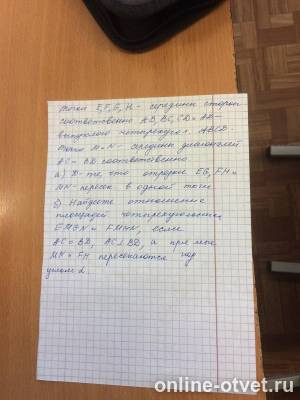 Точки E, F, G, H - середины сторон
соответственно AB, BC, CD и AD
выпуклого четырехугол. ABCD
Точки M и N - середины диагоналей
AC и BD соответственно
а) Д-те что отрезки EG, FH и
MN - пересек в одной точке
б) Найдите отношение
площадей четырехугольников
EMGN и FMHN, если
AC = BD, AC ⊥ BD, а прямые
MN и FH пересекаются под
углом α.
online-otvet.ru